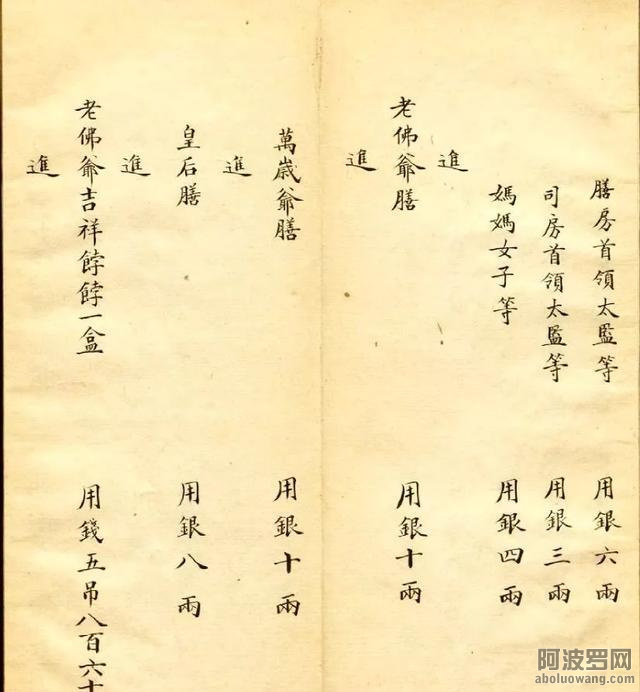 膳房首領太監等 用銀六兩
司房首領太監等 用銀三兩
媽媽女子等 用銀四兩
進
老佛爺膳 用銀十兩
進
萬歲爺膳 用銀十兩
進
皇后膳 用銀八兩
進
老佛爺吉祥餑餑一盒 用錢五吊八百六十
進
阿波罗网
aboluowang.com